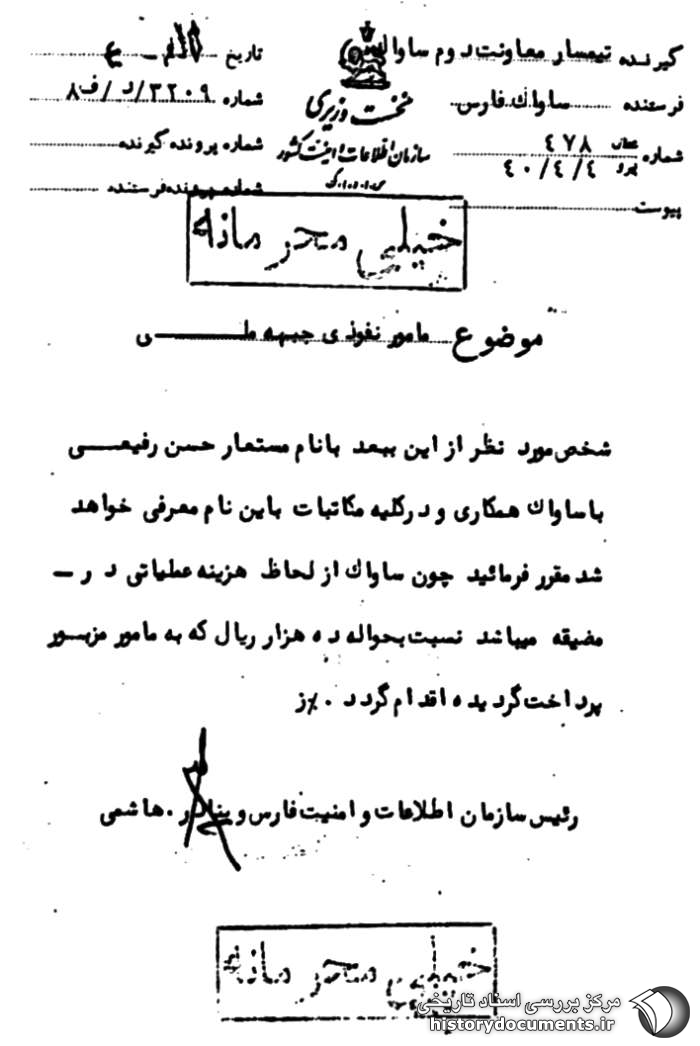 گیرنده تیمسار معاونت دوم ساواک
فرستنده ساواک فارس
شماره عطف ٤٧٨
پیرو ٤٠/٤/٤
پیوست
نخست وزیری
سازمان اطلاعات و امنیت کشور
س.ا.و.ا.ک
تاریخ
شماره ٣٢٠٩/د/ف٨
شماره پرونده گیرنده
شماره پرونده فرستنده
خیلی محرمانه
موضوع مامور نفوذی جبهه ملــــی
شخص مورد نظر از این ببعد بانام مستعار حسن رفیعــی
با ساواک همکاری و درکلیه مکاتبات باین نام معرفی خواهد
شد مقرر فرمائید چون ساواک از لحاظ هزینه عملیاتی در ـ
مضیقه میباشد نسبت بحواله ده هزار ریال که به مامور مزبـور
پرداخت گردیده اقدام گردد ٠٪ز
رئیس سازمان اطلاعات و امنیت فارس و بنادر.هاشمی
خیلی محرمانه
مرکز بررسی اسناد تاریخی
historydocuments.ir